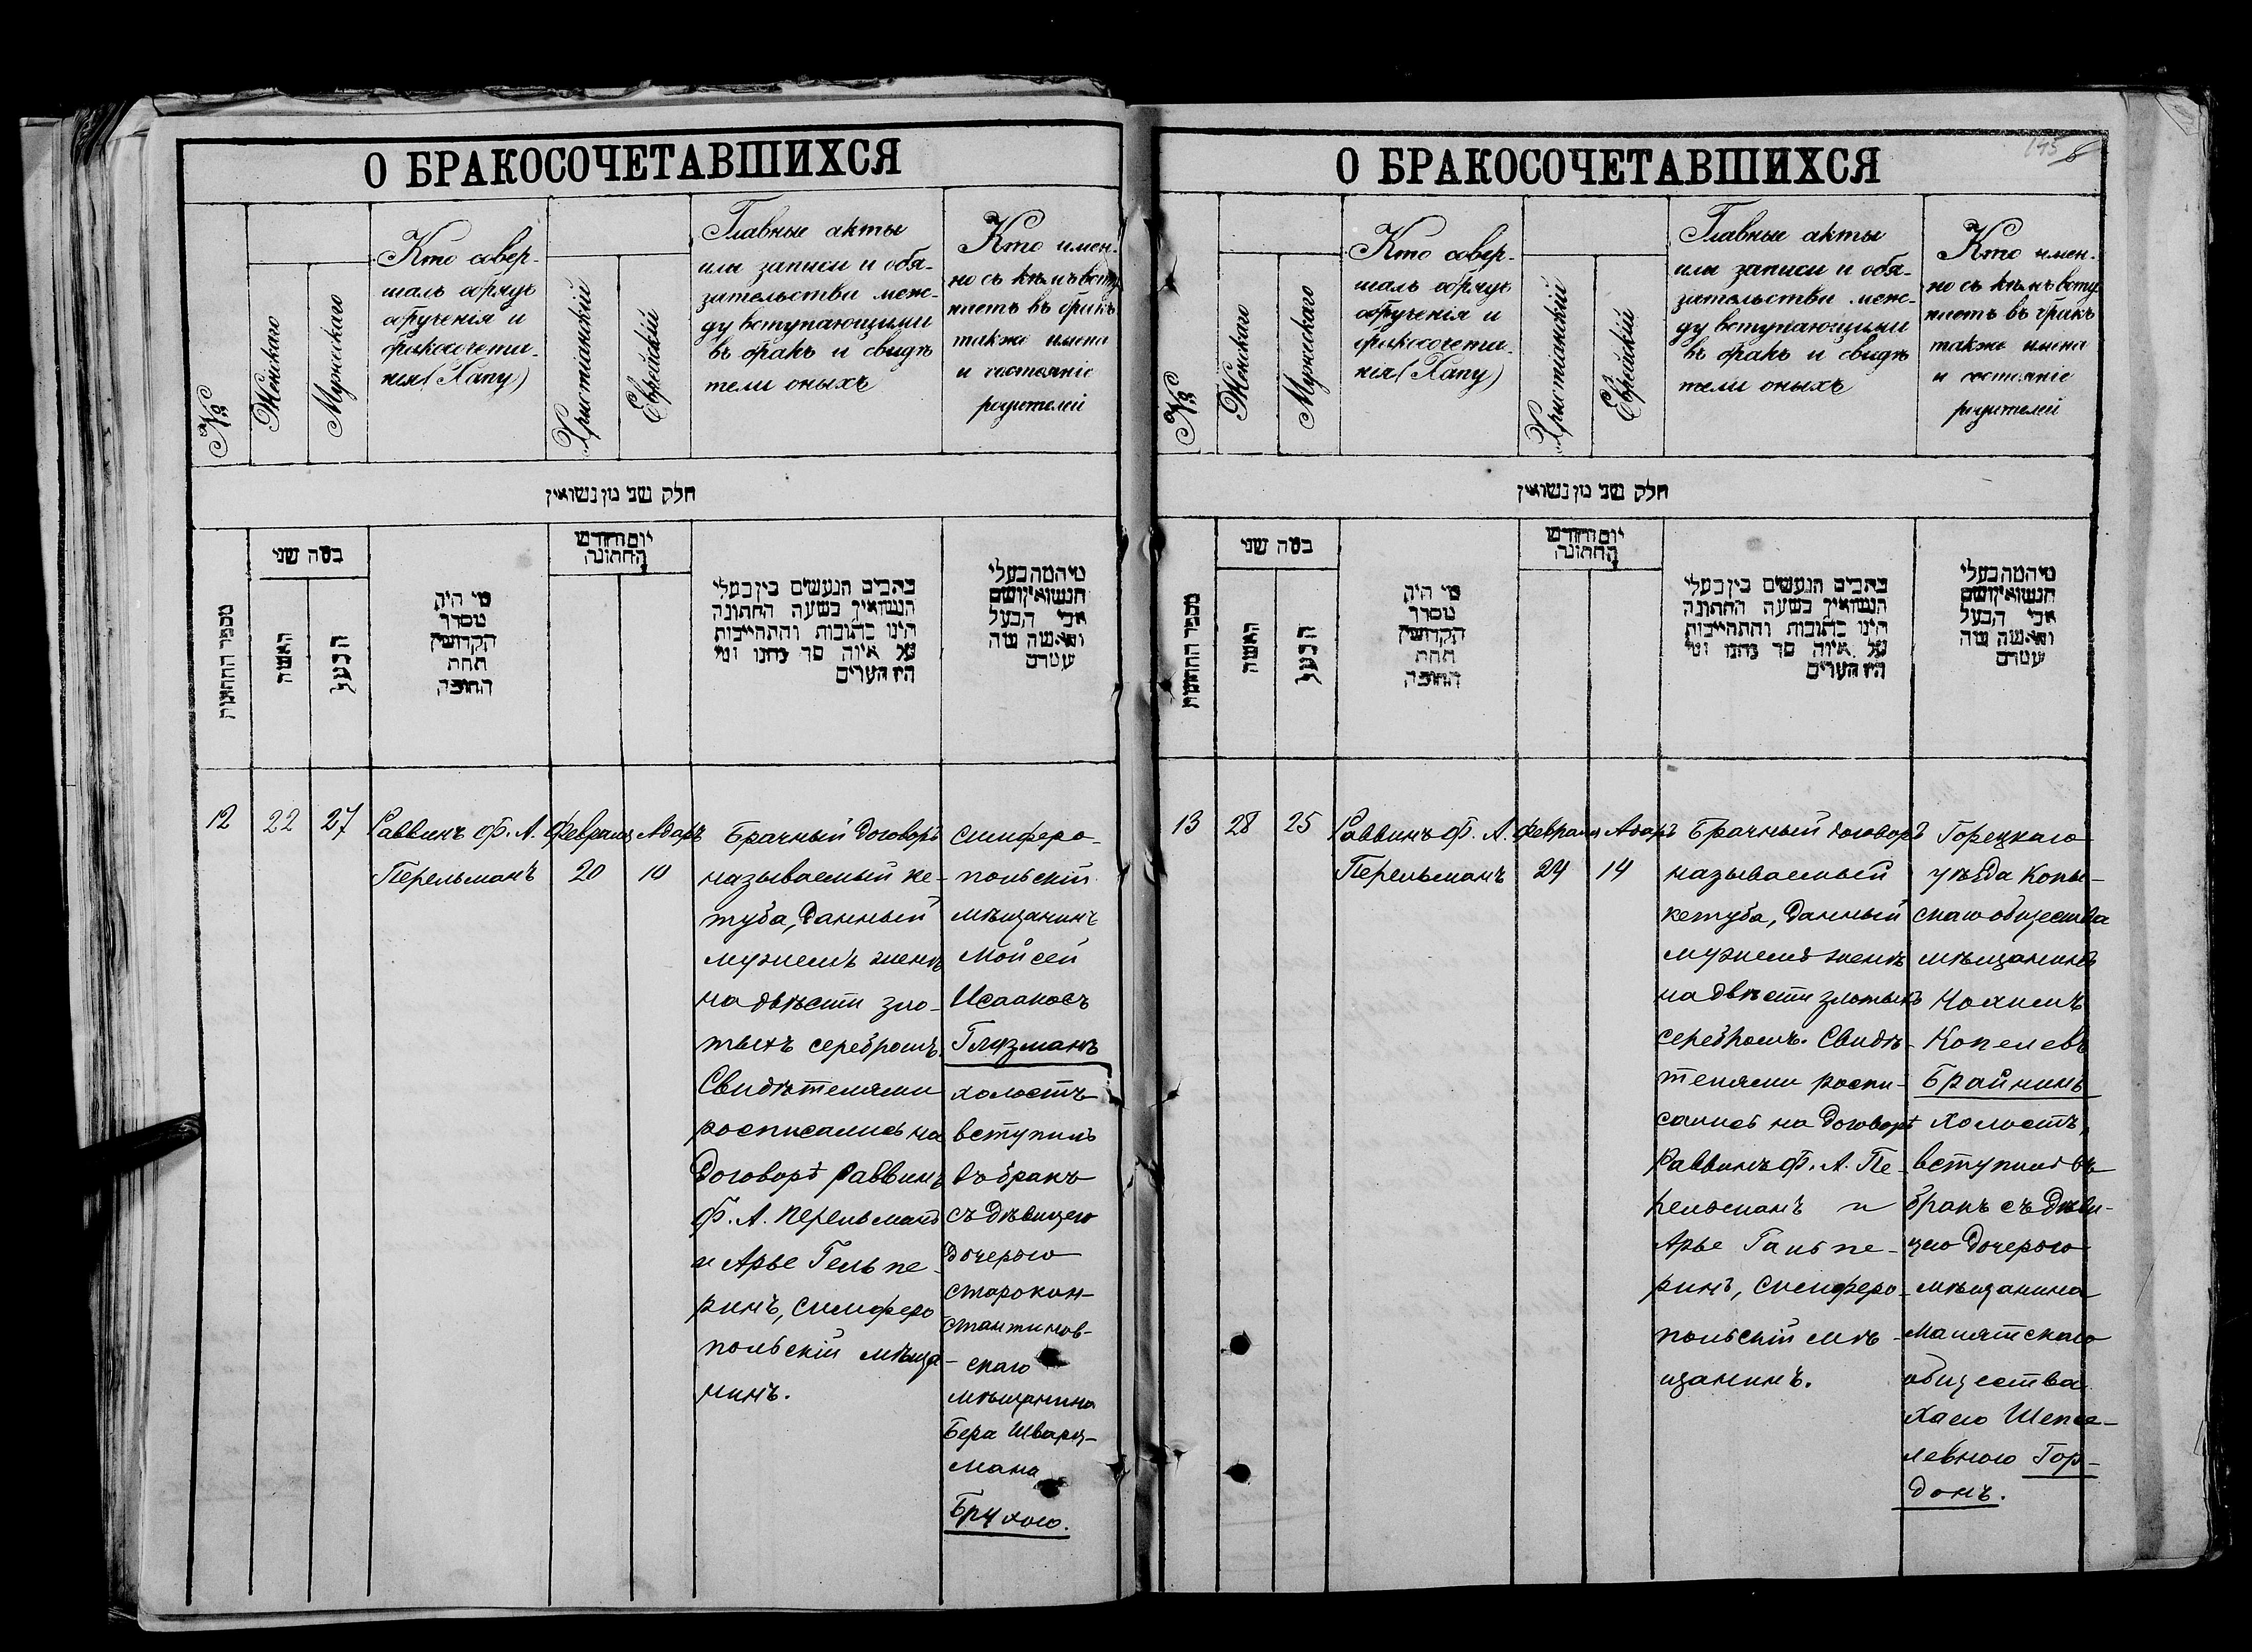 О БРАКОСОЧЕТАВШИХСЯ
№
Женскаго
Мужескаго
Кто совер-
шалъ обрядъ
обрученія и
бракосочета-
нія (Хапу)
Христіанскій
Еврейскій
Главные акты
или записи и обя-
зательства меж-
ду вступающими
въ бракъ и свидѣ
тели оныхъ
Кто имен-
но съ кѣмъ всту
паетъ въ бракъ
также имена
и состояніе
родителей
חלק שני מן נשואין
מספר החתונות
במה שני
האשה
הבעל
מי היה
מסדר
הקדושין
תחת
החופה
יום וחודש
החתונה
כתבים הנעשים בין בעלי
הנשואין בשעה החתונה
היינו כתובות והתחייבות
על איזה סך נתנו ומי
היו העדים
מי המה בעלי
הנשואין ושם
אבי הבעל
והאשה
12
22
27
Раввинъ Ф. А.
Перельманъ
Февраля
20
Адаръ
10
Брачный договоръ
называемый ке-
туба, данный
мужемъ женѣ
на двѣсти зло-
тыхъ серебромъ.
Свидѣтелями
росписались на
договорѣ Раввинъ
Ф. А. Перельманъ
и Арье Гельпе-
ринъ, симферо
польскій мѣща-
нинъ.
Симферо-
польскій
мѣщанинъ
Мойсей
Исааковъ
Глузманъ
холостъ
вступилъ
въ бракъ
съ дѣвицею
дочерью
старокон-
стантинов-
скаго
мѣщанина
Бера Шварц-
мана
Брухою.
О БРАКОСОЧЕТАВШИХСЯ
145
№
Женскаго
Мужескаго
Кто совер-
шалъ обрядъ
обрученія и
бракосочета-
нія (Хапу)
Христіанскій
Еврейскій
Главные акты
или записи и обя-
зательства меж-
ду вступающими
въ бракъ и свидѣ
тели оныхъ
Кто имен-
но съ кѣмъ всту
паетъ въ бракъ
также имена
и состояніе
родителей
חלק שני מן נשואין
מספר החתונות
במה שני
האשה
הבעל
מי היה
מסדר
הקדושין
תחת
החופה
יום וחודש
החתונה
כתבים הנעשים בין בעלי
הנשואין בשעה החתונה
היינו כתובות והתחייבות
על איזה סך נתנו ומי
היו העדים
מי המה בעלי
הנשואין ושם
אבי הבעל
והאשה
13
28
25
Раввинъ Ф. А.
Перельманъ
Февраля
24
Адаръ
14
Брачный договоръ
называемый
кетуба, данный
мужемъ женѣ
на двѣсти злотыхъ
серебромъ. Свидѣ-
телями роспи-
сались на договорѣ
Раввинъ Ф. А. Пе-
рельманъ и
Арье Гальпе-
ринъ, симферо-
польскій мѣ-
щанинъ.
Горецкаго
уѣзда Копы-
скаго общества
мѣщанинъ
Нохимъ
Копелевъ
Брайнинъ
холостъ,
вступилъ въ
бракъ съ дѣви-
цею дочерью
мѣщанина
Малятскаго
общества
Хаею Шепше-
левною Гор-
донъ.